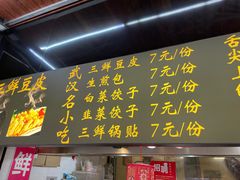 三鲜豆皮
武汉名小吃
三鲜豆皮 7元/份
生煎包 7元/份
白菜饺子 7元/份
韭菜饺子 7元/份
三鲜锅贴 7元/份
舌尖上
鲜